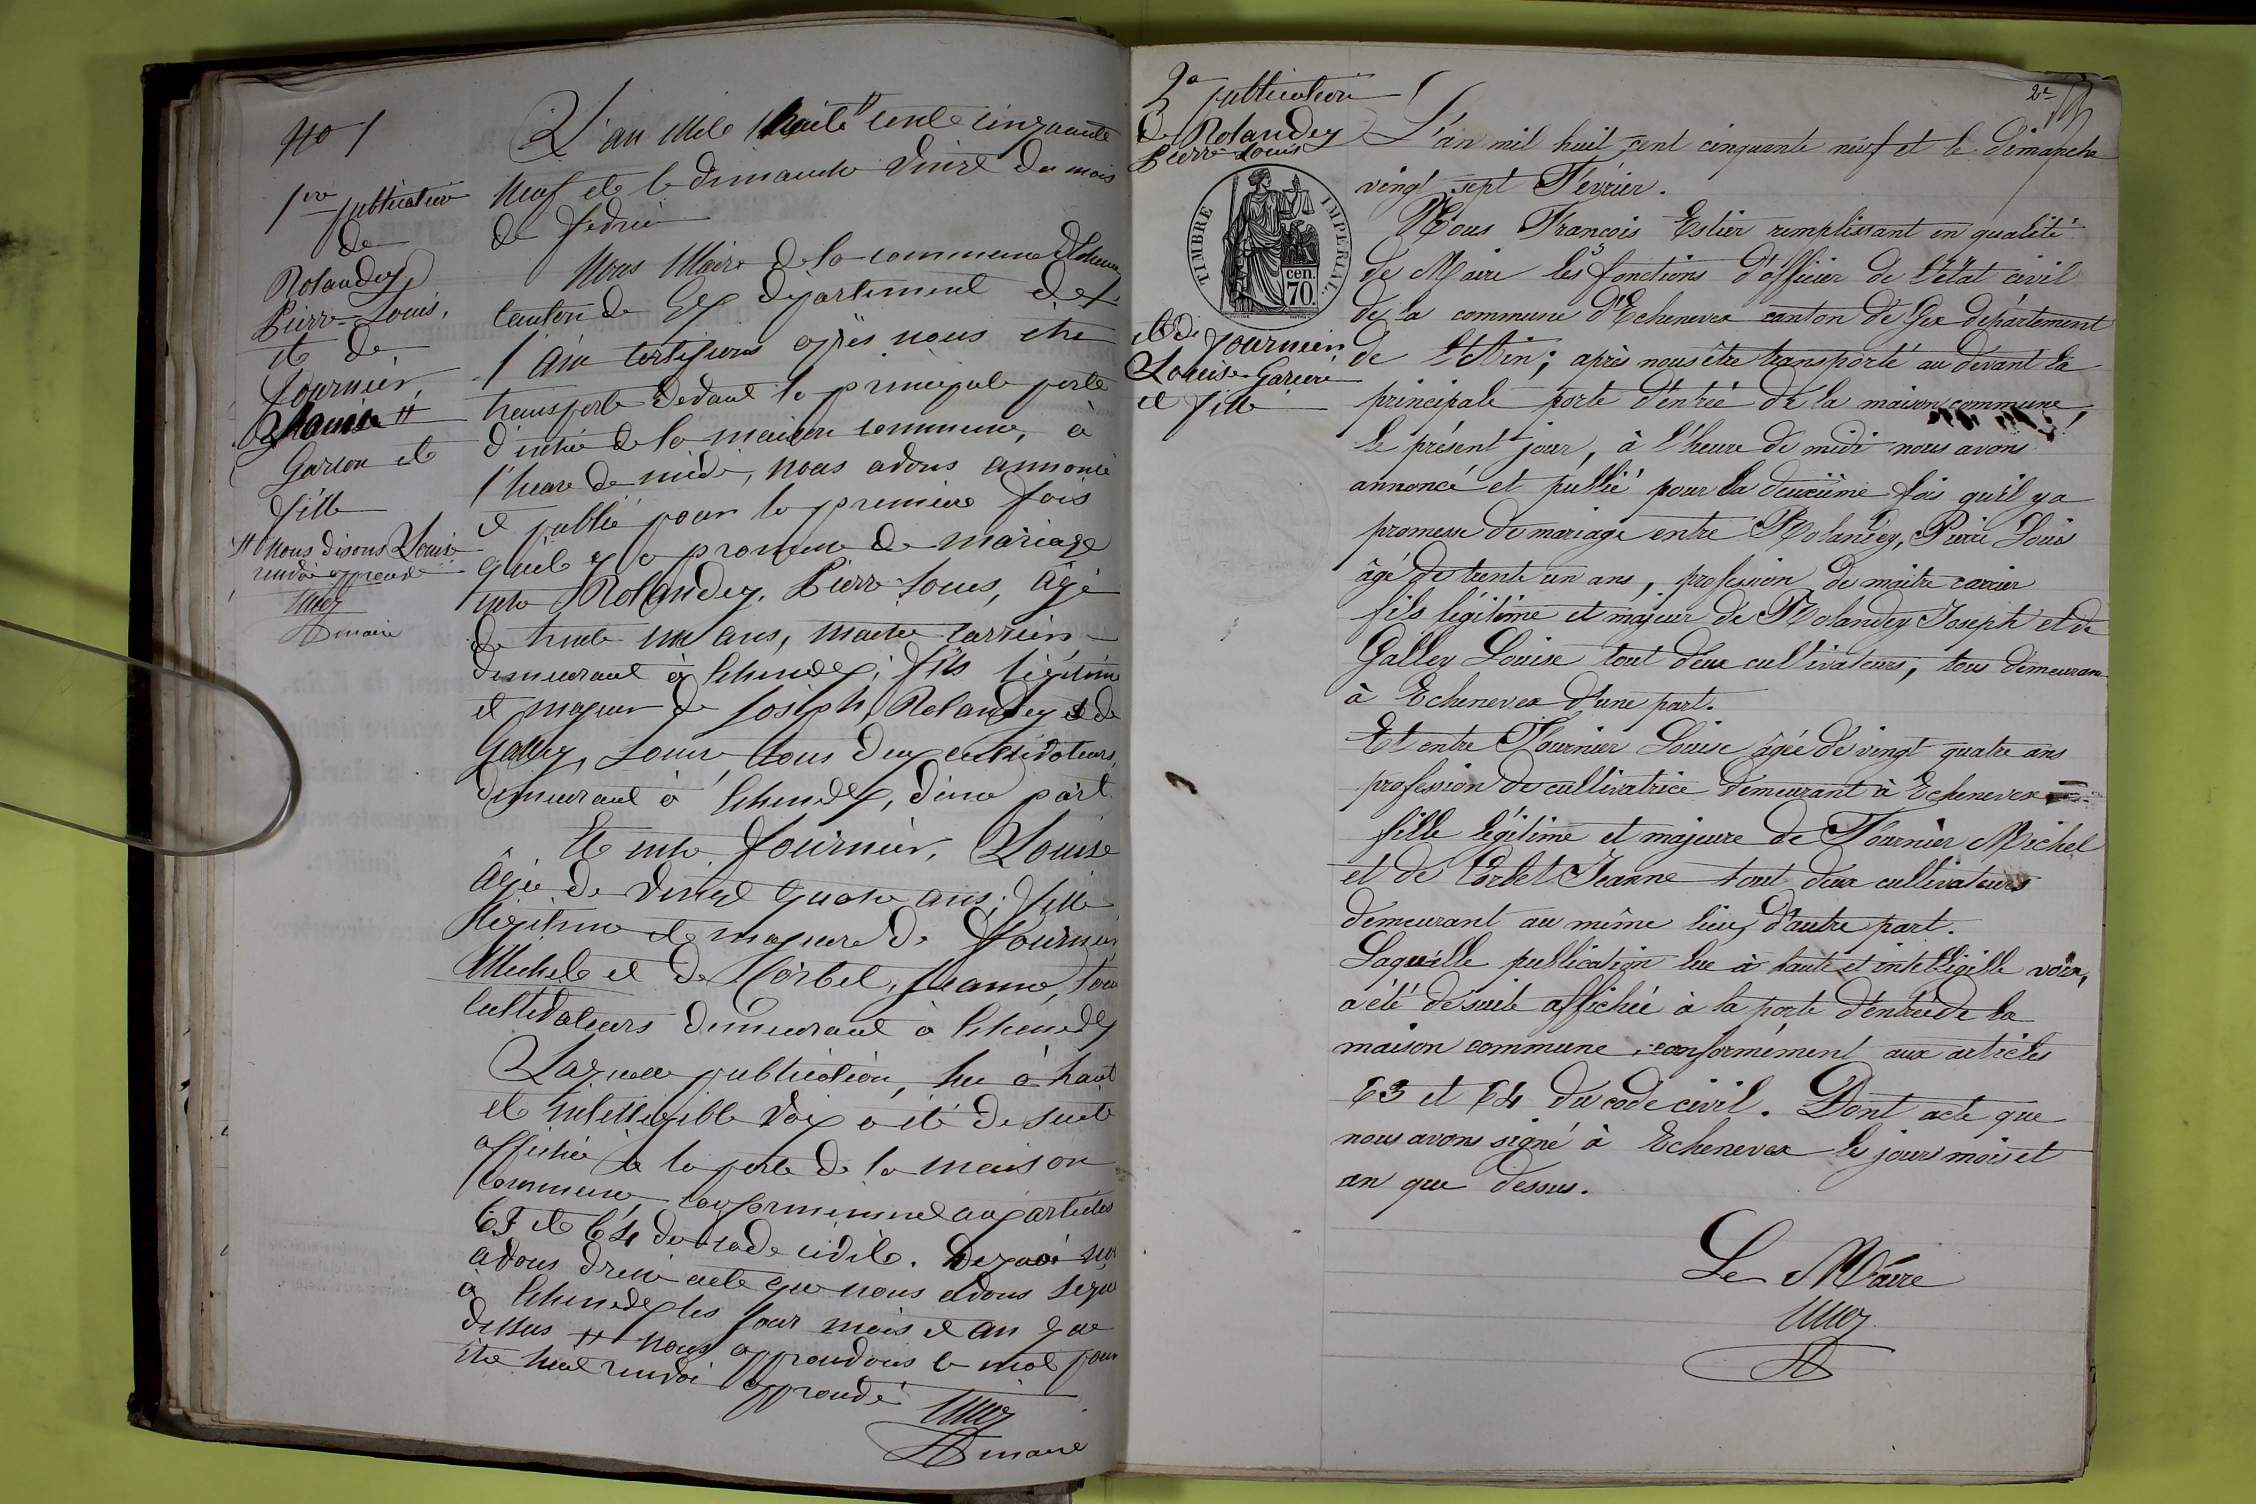 No 1
1re publication
de
Rolandey
Pierre-Louis,
et de
Fournier,
Louise #
Garcon et
fille
# nous disons Louise
renvoi approuvé
maire
L'an mile huit cent cinquante
neuf et le dimanche vingt du mois
de fevrier
Nous Maire de la commune d'Echenevex
canton de Gex département de
l'Ain certifions après nous être
transporté devant la principale porte
d'entrée de la maison commune, à
l'heure de midi, nous avons annoncé
et publié pour la première fois
qu'il y a promesse de mariage
entre Rolandey, Pierre-Louis, âgé
de trente un ans, maitre carrier
demeurant à Echenevex, fils légitime
et majeur de Joseph Rolandey et de
Galley, Louise tous deux cultivateurs,
demeurant à Echenevex, d'une part.
Et entre Fournier, Louise
âgée de vingt quatre ans, fille
légitime et majeure de Fournier
Michel et de Corbet, Jeanne, tous
cultivateurs demeurant à Echenevex
Laquelle publication, lue à haute
et intelligible voix a été de suite
affichée à la porte de la maison
commune, conformement aux articles
63 et 64 du code civile. De quoi nous
avons dressé acte que nous avons signé
à Echenevex les jour mois et an que
dessus # nous approuvons le mot pour
être huit renvoi approuvé
maire
2e publication
de Rolandey
Pierre-Louis
TIMBRE IMPERIAL.
cen.
70.
et de Fournier
Louise Garcon
et fille
2e
L'an mil huit cent cinquante neuf et le dimanche
vingt sept Février.
Nous François Estier remplissant en qualité
de Maire les fonctions d'officier de l'état civil
de la commune d'Echenevex canton de Gex département
de l'Ain; après nous être transporté au devant la
principale porte d'entrée de la maison commune,
le présent jour, à l'heure de midi nous avons
annoncé et publié pour la deuxième fois qu'il y a
promesse de mariage entre Rolandey, Pierre Louis
âgé de trente un ans, profession de maitre carrier
fils légitime et majeur de Rolandey Joseph et de
Galley Louise tout deux cultivateurs, tous demeurant
à Echenevex d'une part.
Et entre Fournier Louise âgée de vingt quatre ans
profession de cultivatrice demeurant à Echenevex
fille légitime et majeure de Fournier Michel
et de Corbet Jeanne tout deux cultivateurs
demeurant au même lieu, d'autre part.
Laquelle publication lue à haute et intelligible voix,
a été de suite affichée à la porte d'entrée de la
maison commune, conformément aux articles
63 et 64 du code civil. Dont acte que
nous avons signé à Echenevex les jours mois et
an que dessus.
Le Maire